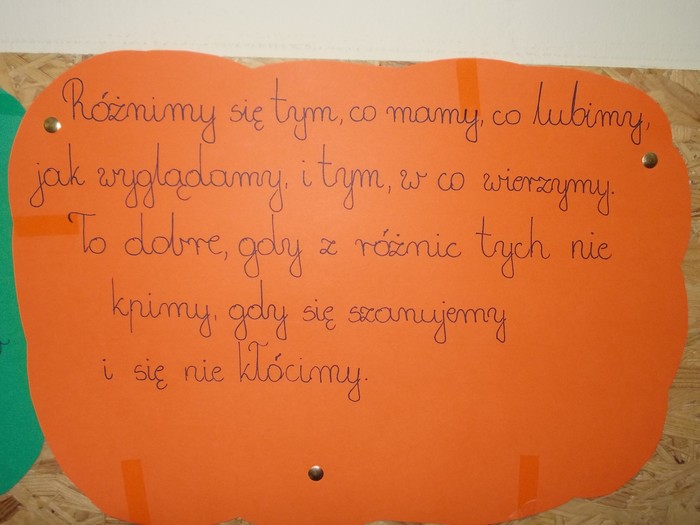 Różnimy się tym, co mamy, co lubimy,
jak wyglądamy, i tym, w co wierzymy.
To dobre, gdy z różnic tych nie
kpimy, gdy się szanujemy
i się nie kłócimy.